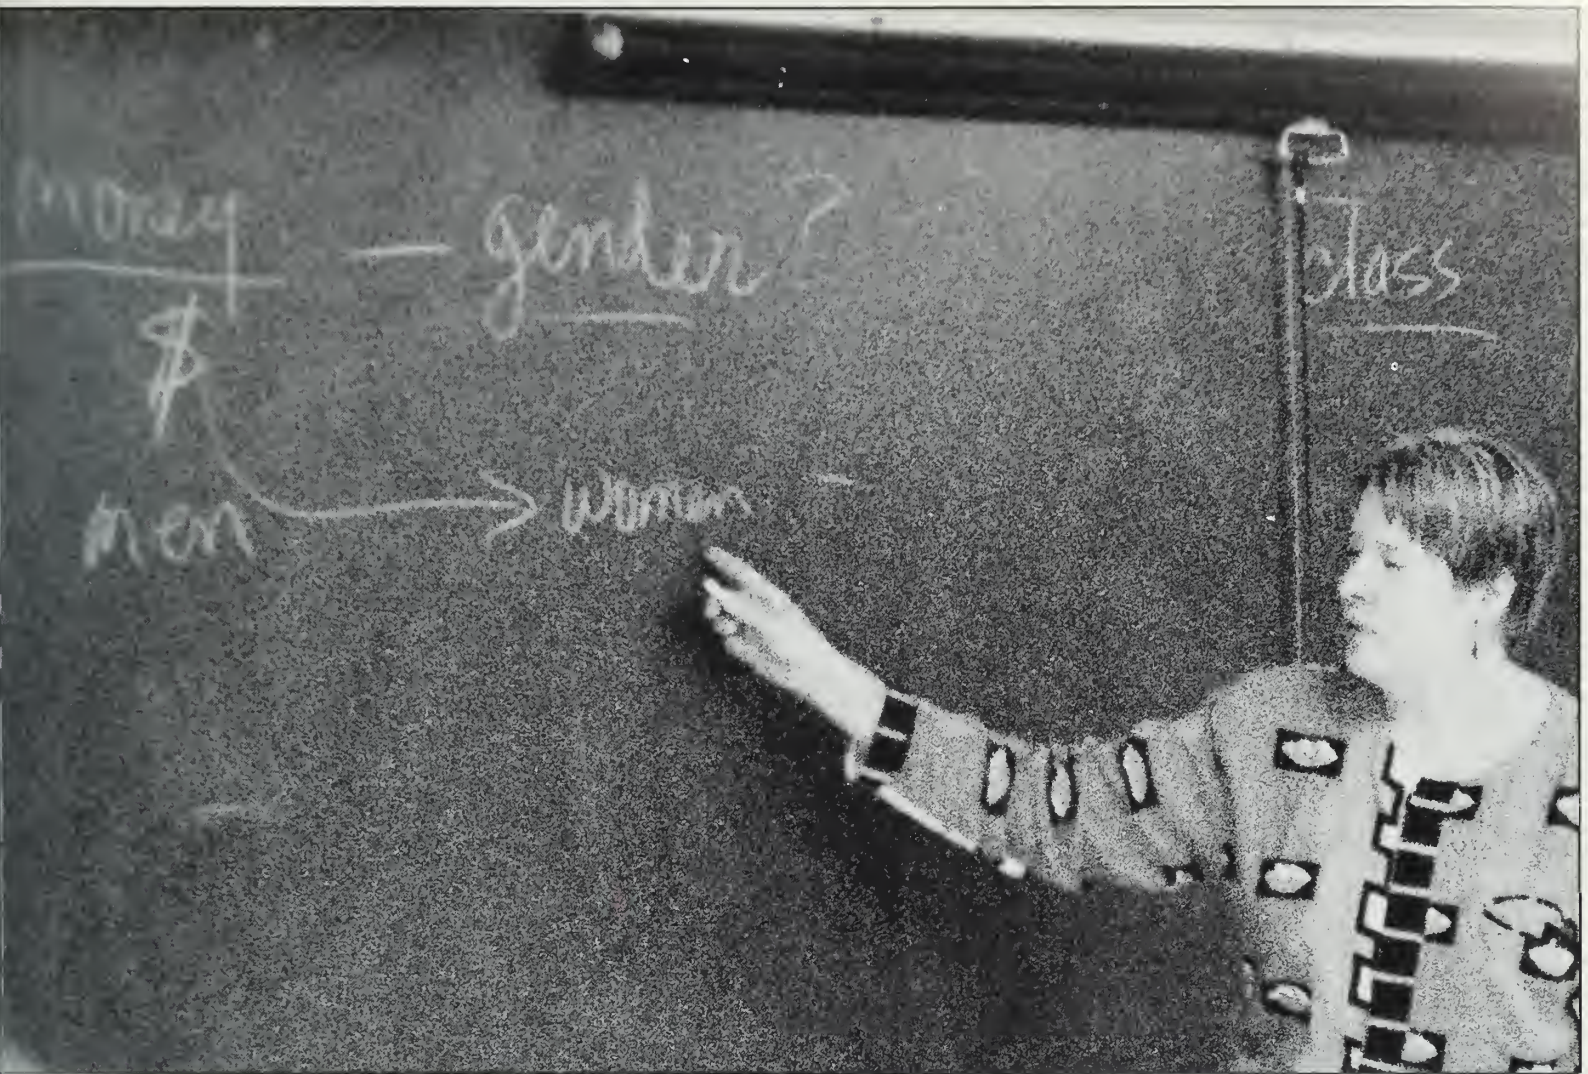 money - gender? class
$
men → women -